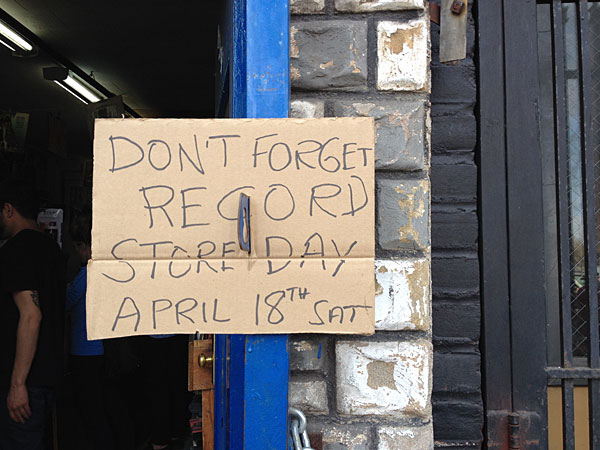 DON'T FORGET
RECORD
STORE DAY
APRIL 18TH SAT